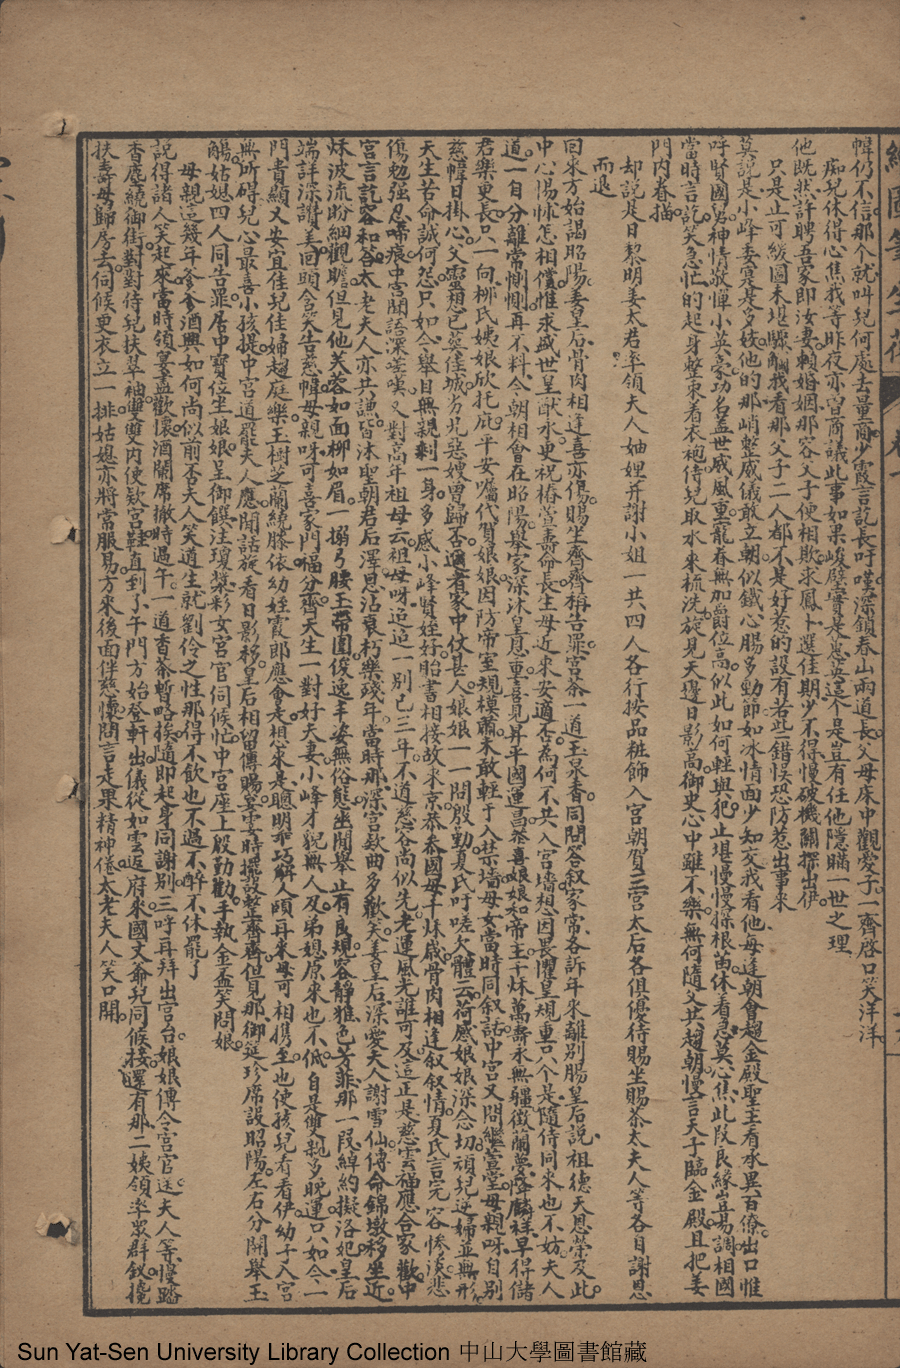 繪圖筆生花
卷十
幃仍不信那个就叫兒何處去量商少霞言訖長吁嘆深鎖春山兩道長父母床中觀愛子一齊啓口笑洋洋
痴兒休得心焦我等昨夜亦曾商議此事如果峻壁實是蕙英這个是豈有任他隱瞞一世之理
他既然許聘吾家即汝妻賴婚姻那容父子便相欺求鳳卜選佳期少不得慢破機關探出伊
只是止可緩圖未堪驟觸我看那父子二人都不是好惹的設有若些錯悞恐防惹出事來
莫說是小峰委寔是多妓他的那峭整威儀敢立朝似鐵心腸多勁節如冰情面少知交我看他每逢朝會趨金殿聖主看承異百僚出口惟
呼賢國舅神情敬憚小英豪功名盖世威風重寵眷無加爵位高似此如何輕與犯止堪慢慢探根苗休看急莫心焦此段良緣豈易調相國
當時言訖笑急忙的起身整束着衣袍侍兒取水來梳洗旋見天邊日影高御史心中雖不樂無何隨父共趨朝慢言天子臨金殿且把姜
門內眷描
却說是日黎明姜太君率領夫人妯娌并謝小姐一共四人各行按品粧飾入宮朝賀三宮太后各俱優待賜坐賜茶太夫人等各自謝恩
而退
回來方始謁昭陽姜皇后骨肉相逢喜亦傷賜坐齊齊稱告罪宮茶一道玉泉香同問答叙家常各訴年來離別腸皇后說祖德天恩榮及此
中心惕怵怎相償惟求盛世皇猷永更祝椿萱壽命長生母近來安適否為何不共入宮墻想因畏懼皇規重只个是隨侍同來也不妨夫人
道一自分離常惻惻再不料今朝相會在昭陽舉家深沐皇恩重喜見昇平國運昌恭喜娘娘和帝主千秋萬壽永無疆徵蘭夢降麟祥早得儲
君樂更長只一向栁氏姨娘欣托庇平安囑代賀娘娘因防帝室規模肅未敢輕于入禁墻母女當時同叙話中宮又問繼萱堂母親呀自別
慈幃日掛心父靈想已塟佳城劣兄惡嫂曾歸否邇者家中仗甚人娘娘一一問殷勤夏氏吁嗟欠體云荷感娘娘深念切頑兒逆婦並無形
天生苦命誠何怨只如今舉目無親剩一身多感小峰賢姪好貽書相接故來京恭泰國母千秋感骨肉相逢叙叙情夏氏言完容慘淡悲
傷勉强忍啼痕中宮聞語深嗟嘆又對高年祖母云祖母呀迢迢一別已三年不道慈容尚似先老運風光誰可及這正是慈雲福應合家歡中
宮言訖容和答太老夫人亦共謙皆沐聖朝君后澤恩沾衰朽樂殘年當時那深宮欵曲多歡笑姜皇后深愛夫人謝雪仙傳命錦墩移坐近
秋波流盼細觀瞻但見他芙蓉如面栁如眉一搦弓腰玉帶圍俊逸丰姿無俗態坐聞舉止有良規容靜雅色芳菲那一段綽約擬洛妃皇后
端詳深讚美回頭含笑告慈幃母親呀可喜家門福分齊天生一對好夫妻小峰才貌無人及弟媳原來也不低自是雙親多晚運只如今一
門貴顯又安宜佳兒佳婦趨庭樂玉樹芝蘭繞膝依幼姪霞郎應會走想來是聰明乖巧解人頤再來母可相携至也使孩兒看看伊幼子入宮
無所碍兒心最喜小孩提中宮道罷夫人應閒話旋看日影移皇后相留傳賜宴霎時擺設整齊齊但見那御筵珍席設昭陽左右分開舉玉
觴姑媳四人同告罪居中寶位坐娘娘呈御饌注瓊漿彩女宮官伺候忙中宮座上殷勤勸手執金盃笑問娘
母親這幾年爹爹酒興如何尚似前否夫人笑道生就劉伶之性那得不飲也不過不醉不休罷了
說得諸人笑起來當時領宴盡歡懷酒闌席撤時過午一道香茶暫略挨隨即起身同謝別三呼再拜出宮台娘娘傳令宮官送夫人等慢踏
香塵繞御街對對侍兒扶翠袖雙雙內使欵宮鞋直到了午門方始登軒出儀從如雲返府來國丈爺兒同候接還有那二姨領率眾群釵攙
扶壽母歸房去伺候更衣立一排姑媳亦將常服易方來後面伴慈懷問言走果精神倦太老夫人笑口開
Sun Yat-Sen University Library Collection 中山大學圖書館藏